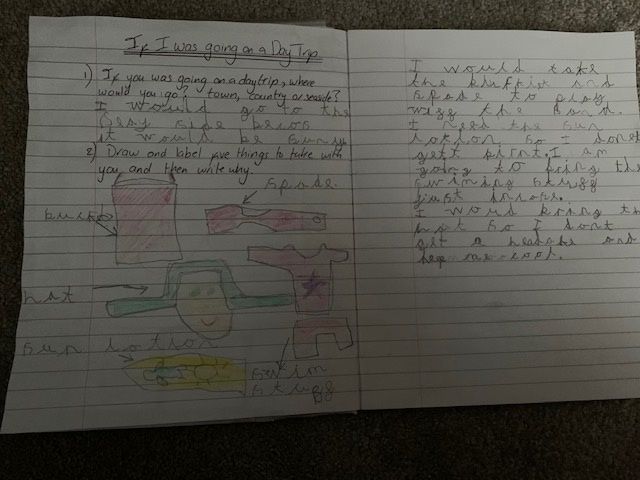 If I was going on a Day Trip
1) If you was going on a daytrip, where
would you go? town, country or seaside?
I would go to the
Seay side becos
it would be suny
2) Draw and label five things to take with
you and then write why.
spade.
bucket
hat
sun lotion
swim
stuff
I would take
the and
spade to play
with the sand.
I need the sun
lotion so I dont
get I am
going to bring the
swiming stuff
just incase.
I woud bring the
hat so I dont
get a and
cool.